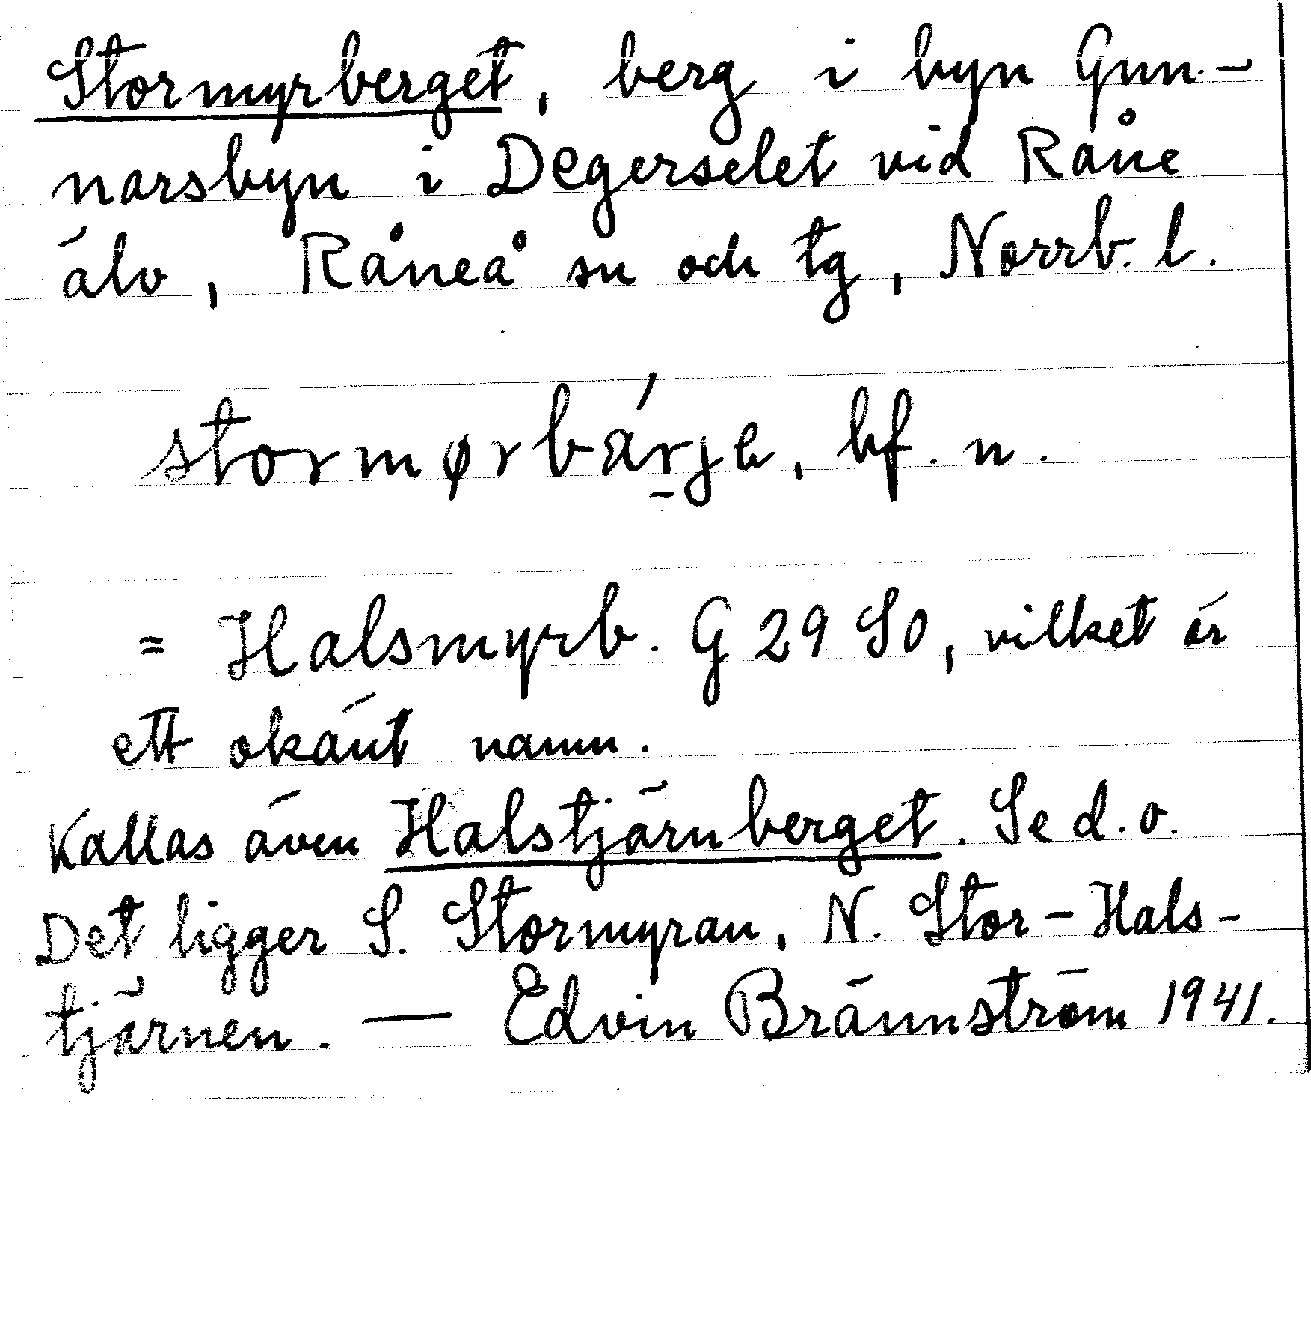 Stormyrberget, berg i byn Gun-
narsbyn i Degerselet vid Råne
älv, Råneå sn och tg, Norrb. l.
stormørbárje, bf. n.
= Halsmyrb. G 29 SO, vilket är
ett okänt namn.
Kallas även Halstjärnberget. Se d. o.
Det ligger S. Stormyran, N. Stor-Hals-
tjärnen. — Edvin Brännström 1941.